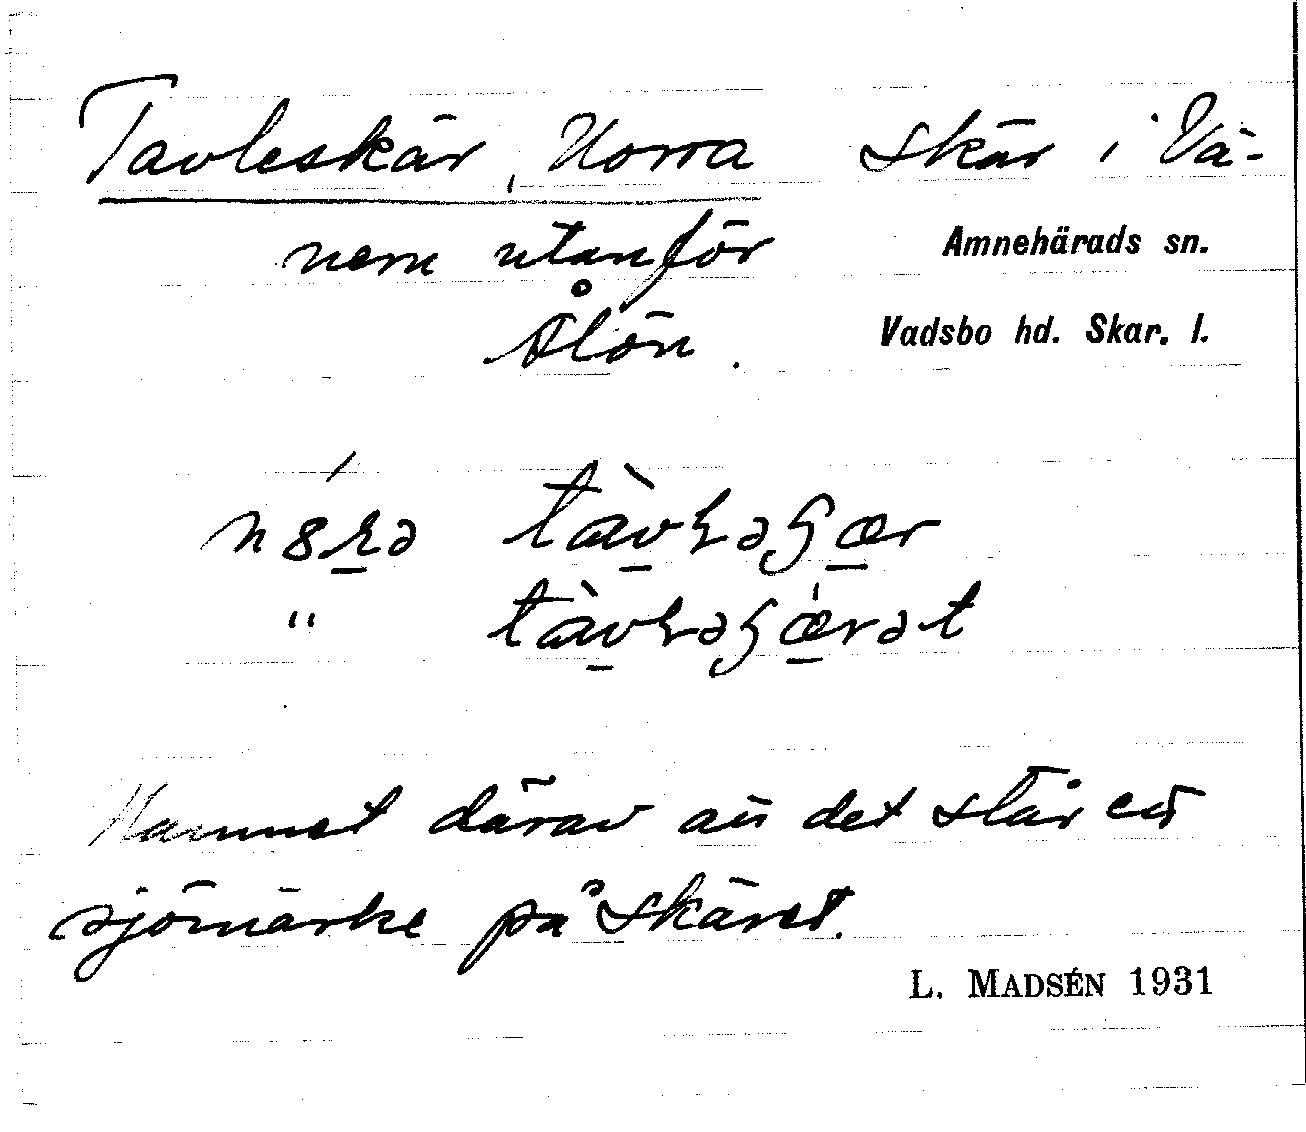 Tavleskär, Norra skär i Vä-
nern utanför Amnehärads sn.
Ålön. Vadsbo hd. Skar. l.
Namnet därav att det står ett
sjömärke på skäret.
L. MADSÉN 1931